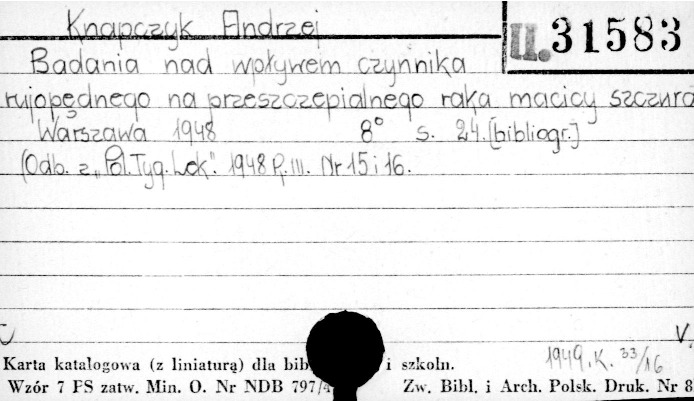 Knapczyk Andrzej
II. 31583
Badania nad wpływem czynnika
rujopędnego na przeszczepialnego raka macicy szczura
Warszawa 1948 8° s. 24. [bibliogr.]
(Odb. z „Pol. Tyg. Lek." 1948 R. III. Nr 15 i 16.
V.
1949. K. 33/16
Karta katalogowa (z liniaturą) dla i szkoln.
Wzór 7 FS zatw. Min. O. Nr NDB 797/ Zw. Bibl. i Arch. Polsk. Druk. Nr 8